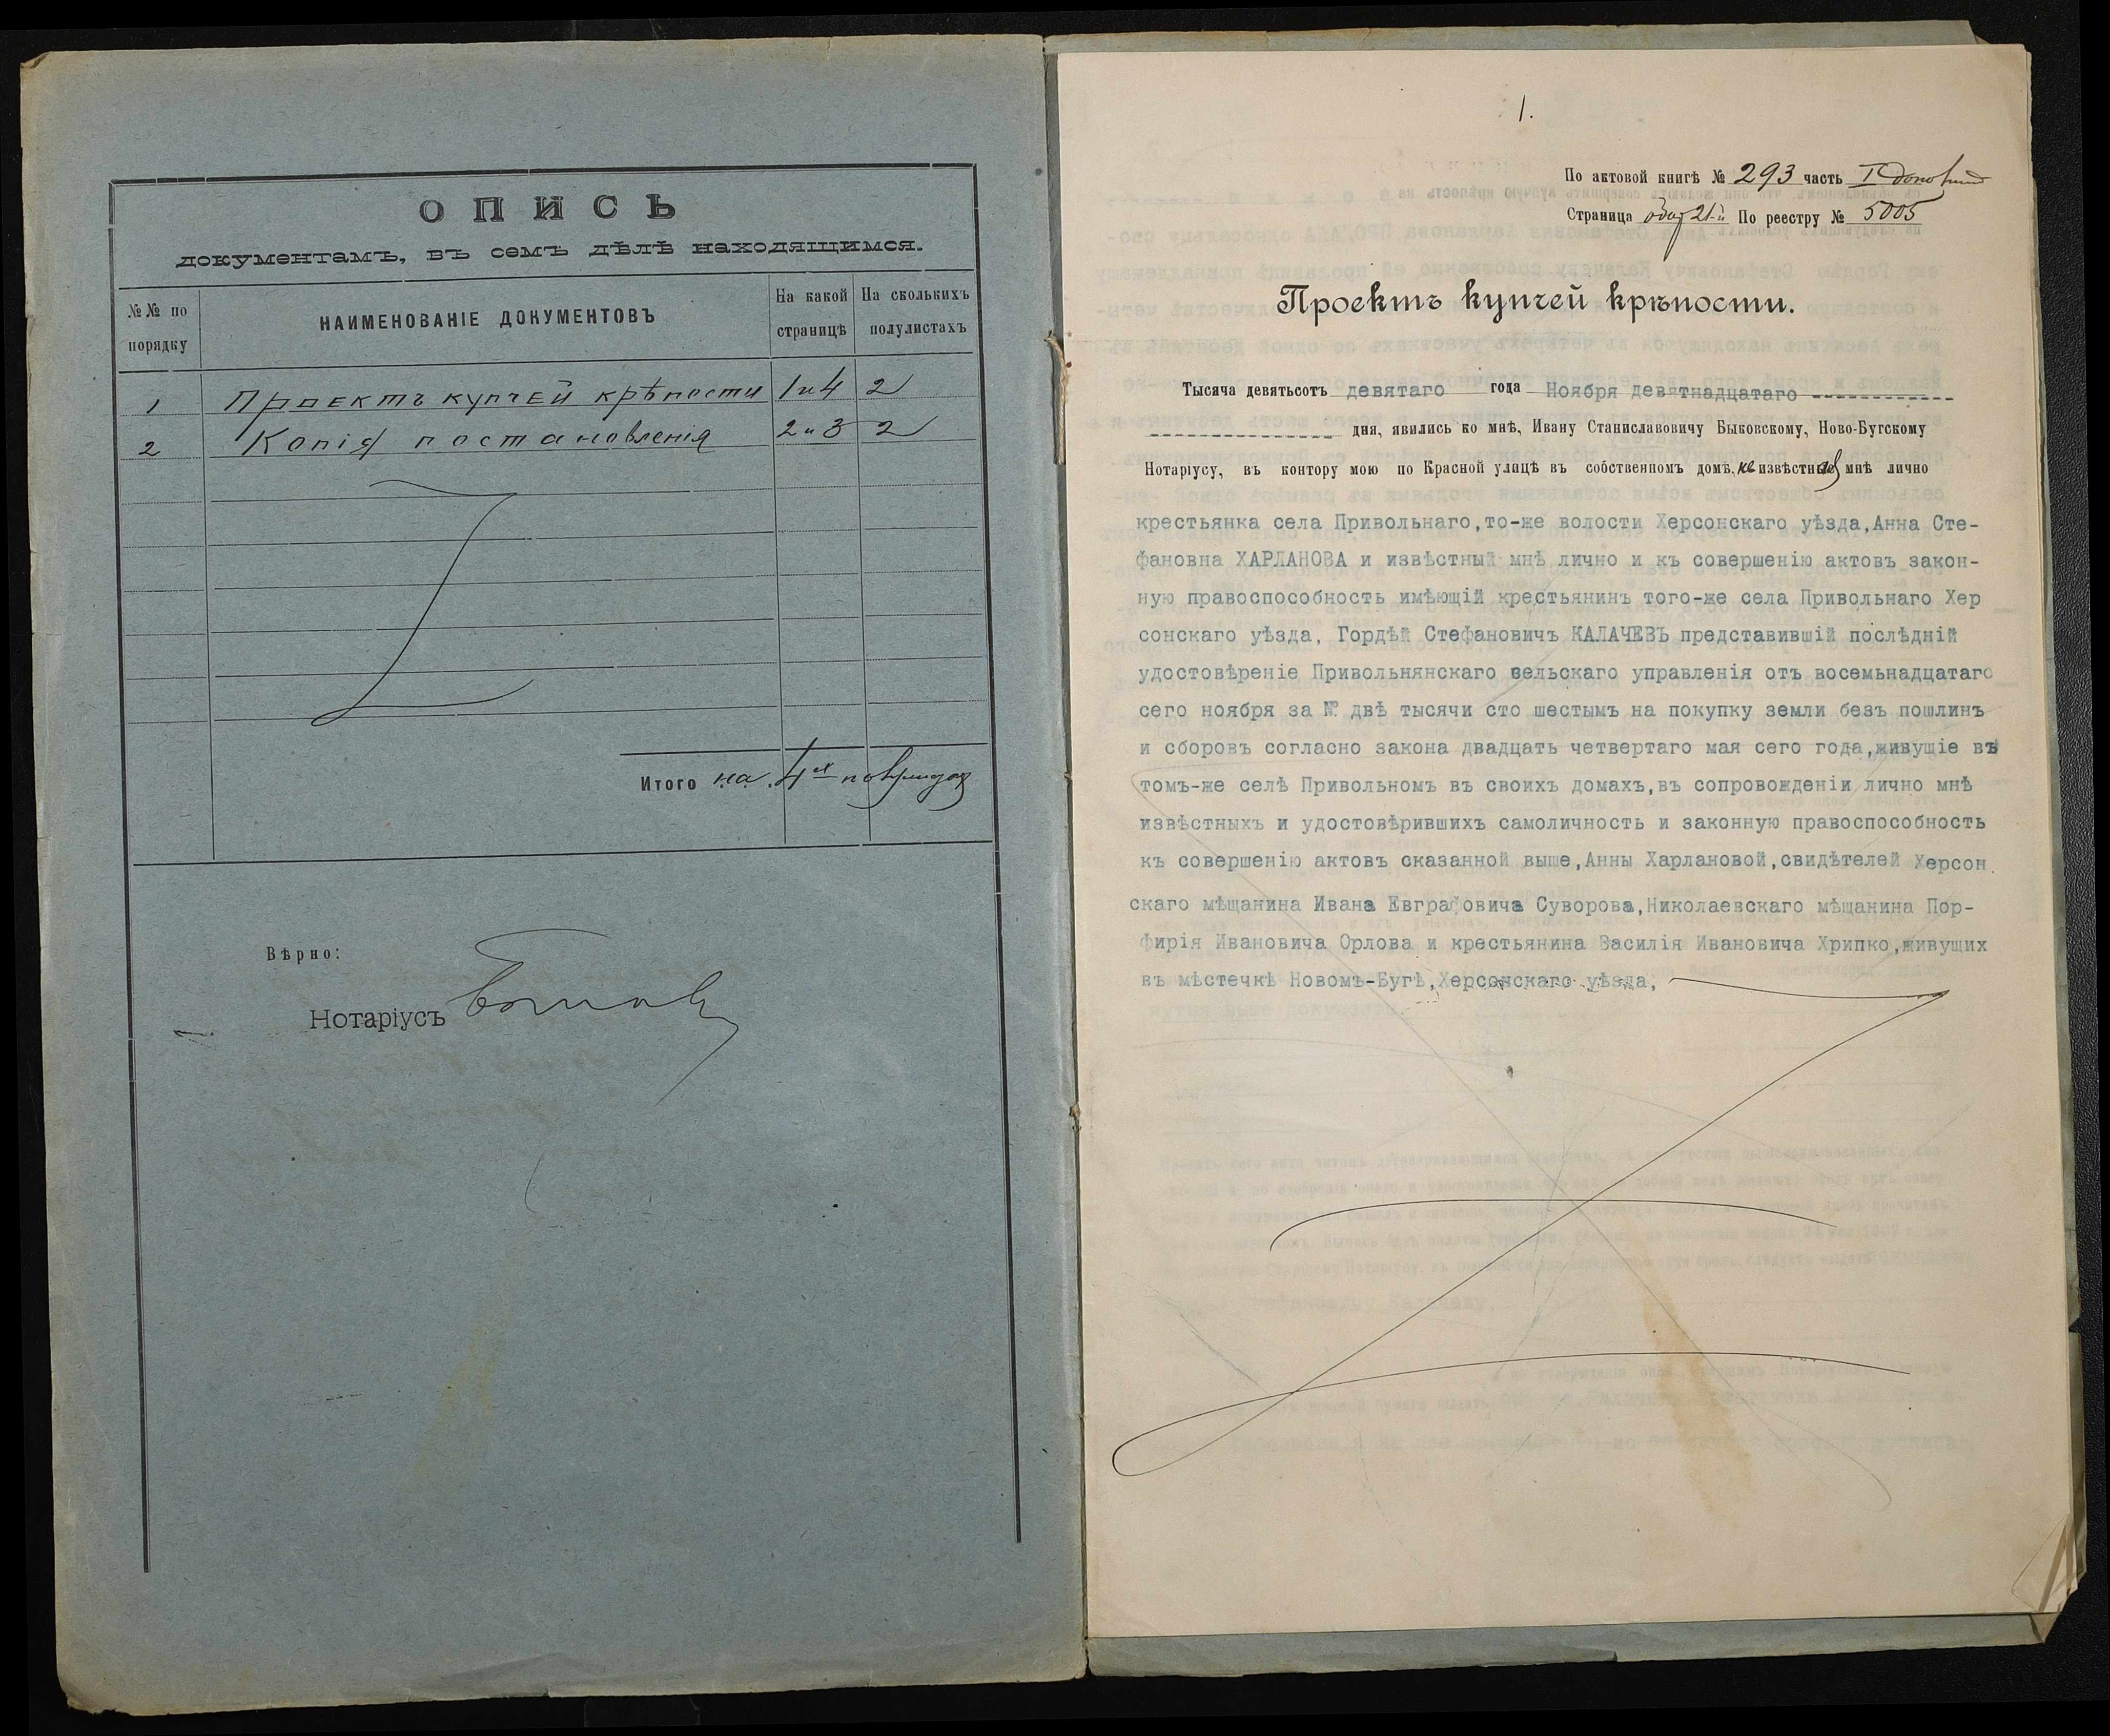 ОПИСЬ
документамъ, въ семъ дѣлѣ находящимся.
№№ по порядку
НАИМЕНОВАНІЕ ДОКУМЕНТОВЪ
На какой страницѣ
На сколькихъ полулистахъ
1 Проектъ купчей крѣпости 1 и 4 2
2 Копія постановленія 2 и 3 2
Итого на 4-хъ
Вѣрно:
Нотаріусъ
1.
По актовой книгѣ № 293 часть I
Страница 21-й По реестру № 5005
Проектъ купчей крѣпости.
Тысяча девятьсотъ девятаго года Ноября девятнадцатаго
дня, явились ко мнѣ, Ивану Станиславовичу Быковскому, Ново-Бугскому
Нотаріусу, въ контору мою по Красной улицѣ въ собственномъ домѣ, неизвѣстная мнѣ лично
крестьянка села Привольнаго,то-же волости Херсонскаго уѣзда,Анна Сте-
фановна ХАРЛАНОВА и извѣстный мнѣ лично и къ совершенію актовъ закон-
ную правоспособность имѣющій крестьянинъ того-же села Привольнаго Хер
сонскаго уѣзда, Гордѣй Стефановичъ КАЛАЧЕВЪ представившій послѣдній
удостовѣреніе Привольнянскаго сельскаго управленія отъ восемьнадцатаго
сего ноября за № двѣ тысячи сто шестымъ на покупку земли безъ пошлинъ
и сборовъ согласно закона двадцать четвертаго мая сего года,живущіе въ
томъ-же селѣ Привольномъ въ своихъ домахъ,въ сопровожденіи лично мнѣ
извѣстныхъ и удостовѣрившихъ самоличность и законную правоспособность
къ совершенію актовъ сказанной выше,Анны Харлановой,свидѣтелей Херсон
скаго мѣщанина Ивана Евграфовича Суворова,Николаевскаго мѣщанина Пор-
фирія Ивановича Орлова и крестьянина Василія Ивановича Хрипко,живущих
въ мѣстечкѣ Новомъ-Бугѣ,Херсонскаго уѣзда,